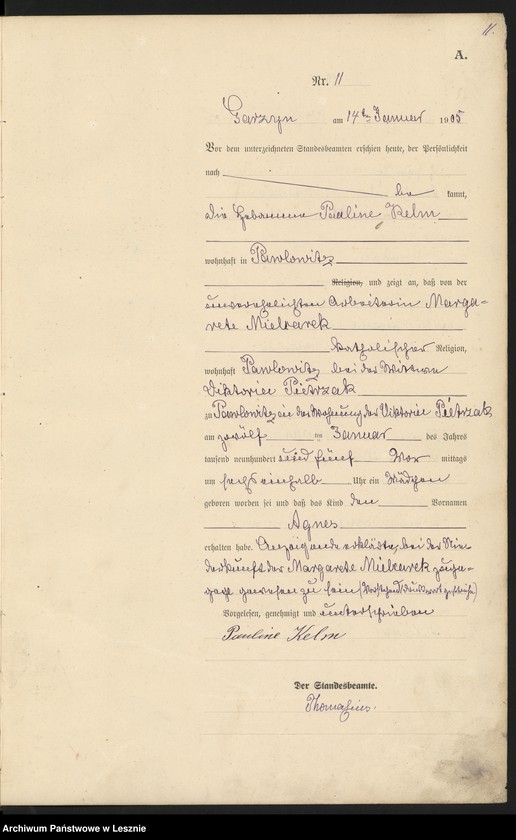 11.
A.
Nr. 11
Garzyn am 14ten Januar 1905
Vor dem unterzeichneten Standesbeamten erschien heute, der Persönlichkeit
nach be kannt,
die Hebamme Pauline Kelm
wohnhaft in Pawlowitz
Religion, und zeigt an, daß von der
unverehelichten Arbeiterin Marga-
rete Mielcarek
katholischer Religion,
wohnhaft Pawlowitz bei der Wittwe
Viktorie Pietrzak
zu Pawlowitz in der Wohnung der Viktorie Pietrzak
am zwölf ten Januar des Jahres
tausend neunhundert und fünf Vor mittags
um sechs einhalb Uhr ein Mädchen
geboren worden sei und daß das Kind den Vornamen
Agnes
erhalten habe. Anzeigende erklärte, bei der Nie-
derkunft der Margarete Mielcarek zuge-
gen gewesen zu sein (Vorstehend Druckwort gestrichen)
Vorgelesen, genehmigt und unterschrieben
Pauline Kelm
Der Standesbeamte.
Thomasius.
Archiwum Państwowe w Lesznie